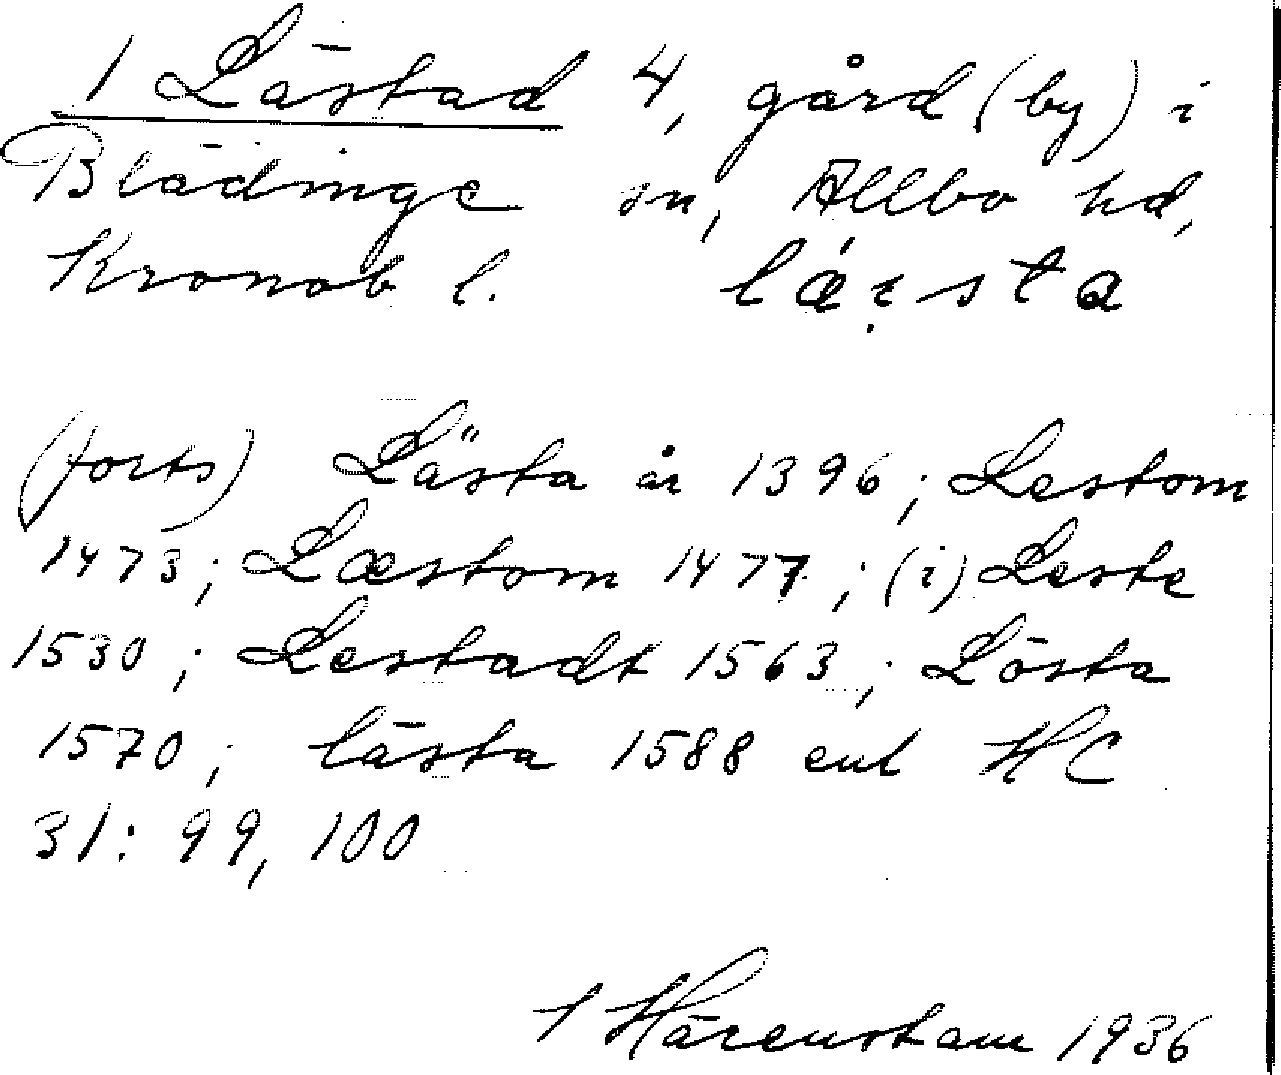 1 Lästad 4, gård (by) i
Blädinge sn, Allbo hd,
Kronob l. lǽ.ɪsta
(forts) Lästa år 1396; Lestom
1473; Læstom 1477; (i) Leste
1530; Lestadt 1563; Lösta
1570; lästa 1588 enl HC
31: 99, 100
I Härenstam 1936